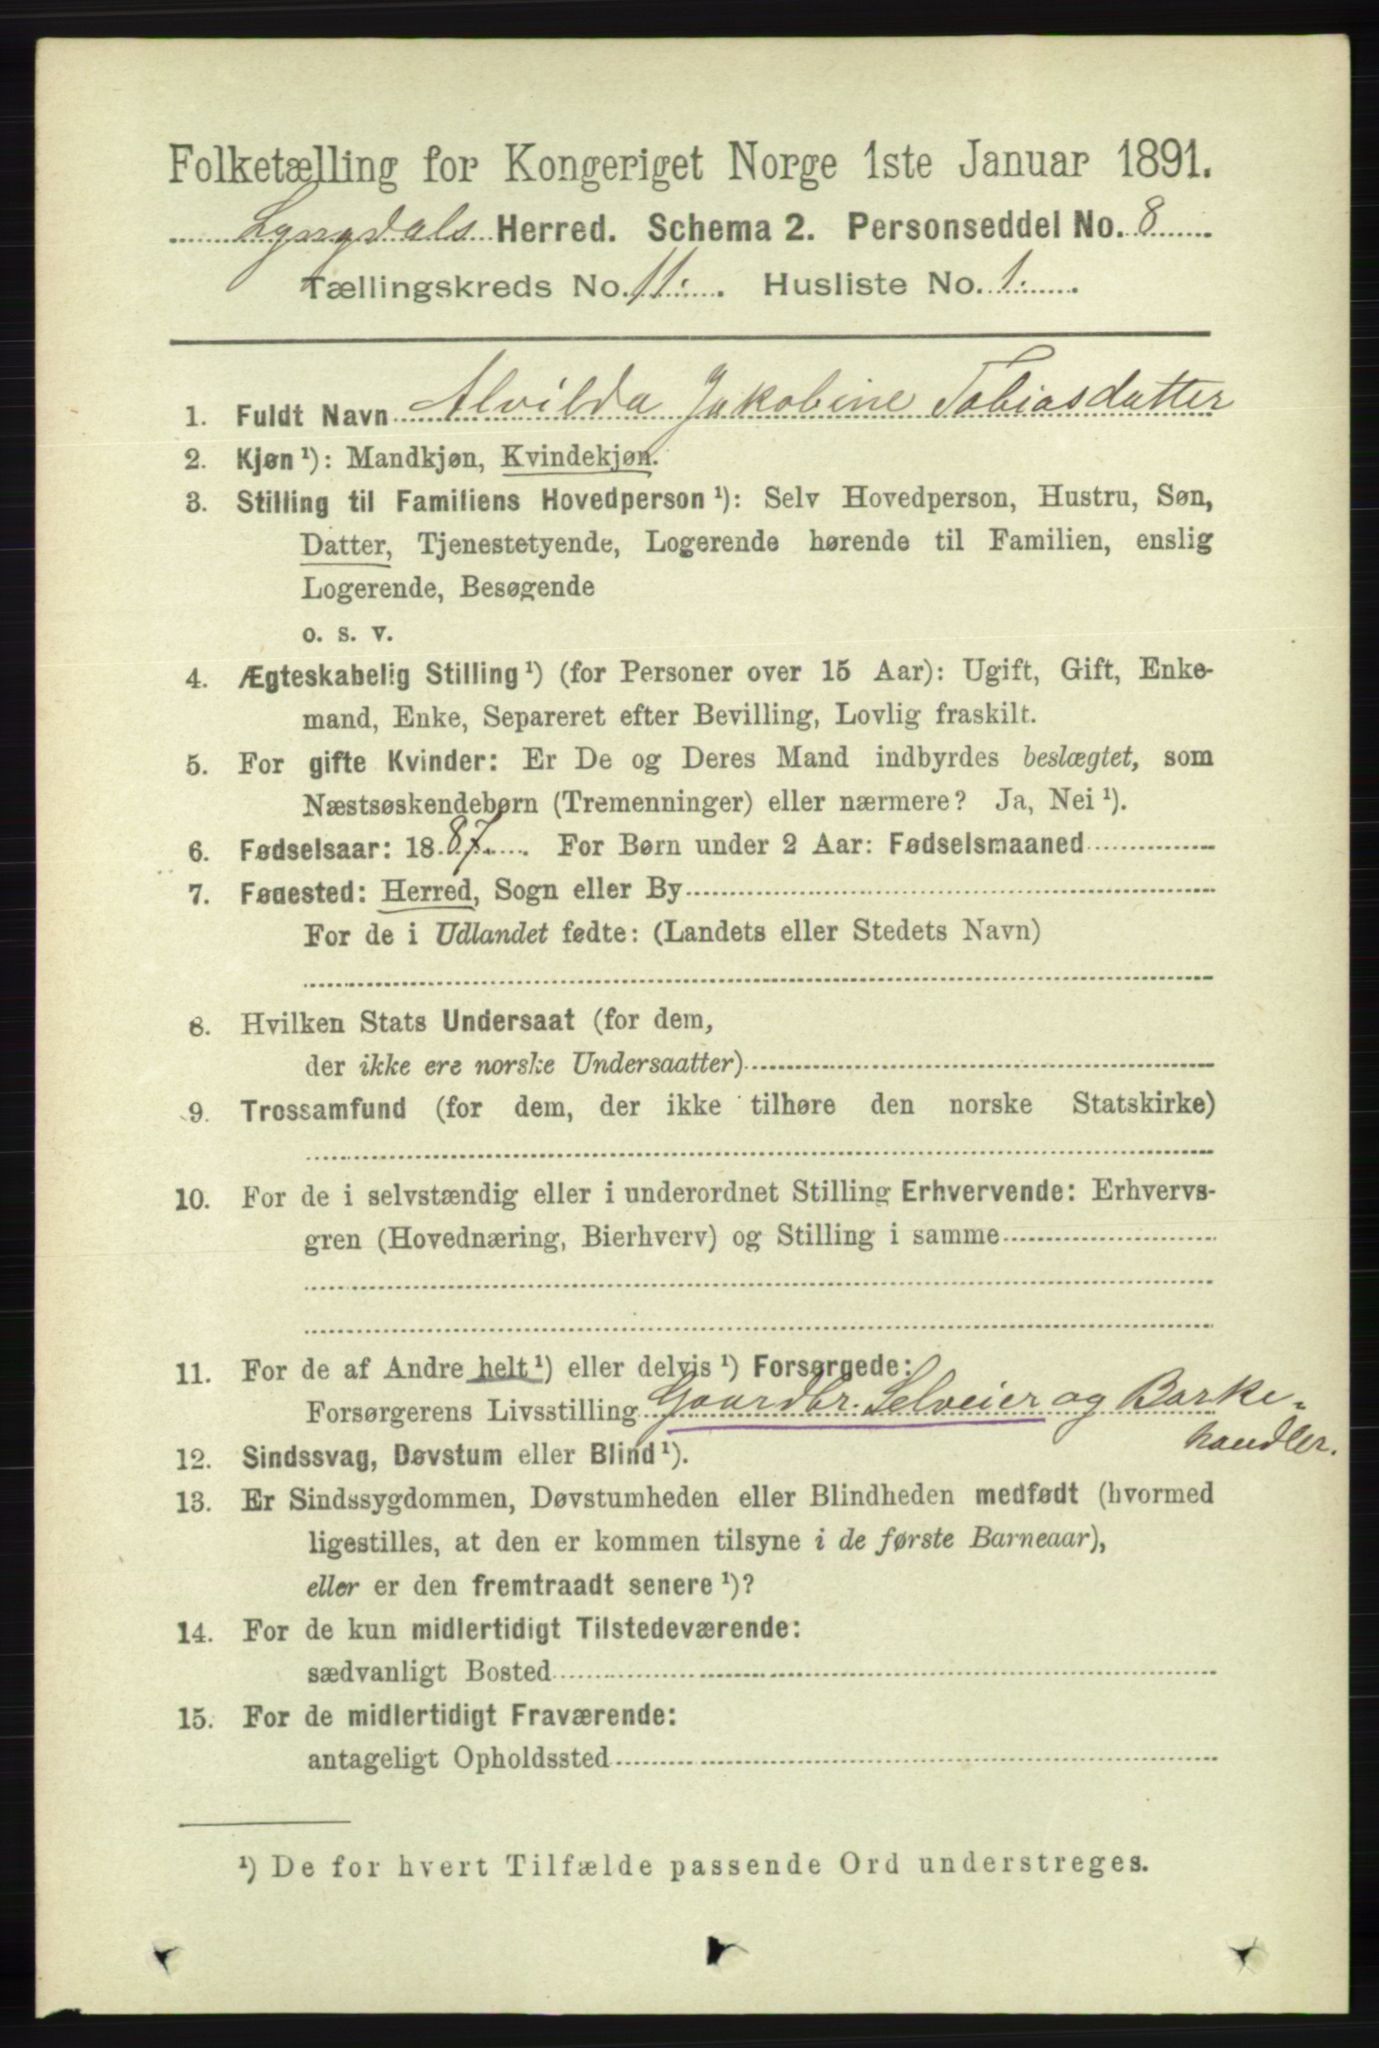 Folketælling for Kongeriget Norge 1ste Januar 1891.
Lyngdals Herred. Schema 2. Personseddel No. 8
Tællingskreds No. 11. Husliste No. 1.
1. Fuldt Navn Alvilda Jakobine Tobiasdatter
2. Kjøn ¹): Mandkjøn, Kvindekjøn.
3. Stilling til Familiens Hovedperson ¹): Selv Hovedperson, Hustru, Søn,
Datter, Tjenestetyende, Logerende hørende til Familien, enslig
Logerende, Besøgende
o. s. v.
4. Ægteskabelig Stilling ¹) (for Personer over 15 Aar): Ugift, Gift, Enke-
mand, Enke, Separeret efter Bevilling, Lovlig fraskilt.
5. For gifte Kvinder: Er De og Deres Mand indbyrdes beslægtet, som
Næstsøskendebørn (Tremenninger) eller nærmere? Ja, Nei ¹).
6. Fødselsaar: 1887. For Børn under 2 Aar: Fødselsmaaned
7. Fødested: Herred, Sogn eller By
For de i Udlandet fødte: (Landets eller Stedets Navn)
8. Hvilken Stats Undersaat (for dem,
der ikke ere norske Undersaatter)
9. Trossamfund (for dem, der ikke tilhøre den norske Statskirke)
10. For de i selvstændig eller i underordnet Stilling Erhvervende: Erhvervs-
gren (Hovednæring, Bierhverv) og Stilling i samme
11. For de af Andre helt ¹) eller delvis ¹) Forsørgede:
Forsørgerens Livsstilling Gaardbr. Selveier og Barke-
handler.
12. Sindssvag, Døvstum eller Blind ¹).
13. Er Sindssygdommen, Døvstumheden eller Blindheden medfødt (hvormed
ligestilles, at den er kommen tilsyne i de første Barneaar),
eller er den fremtraadt senere ¹)?
14. For de kun midlertidigt Tilstedeværende:
sædvanligt Bosted
15. For de midlertidigt Fraværende:
antageligt Opholdssted
¹) De for hvert Tilfælde passende Ord understreges.